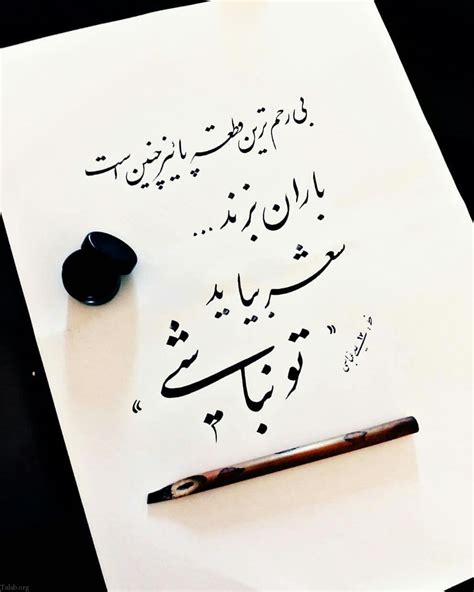 بی رحم ترین قطعه پائیز چنین است
باران بزند ...
شعر بیاید
"تو نباشی"
Talab.org